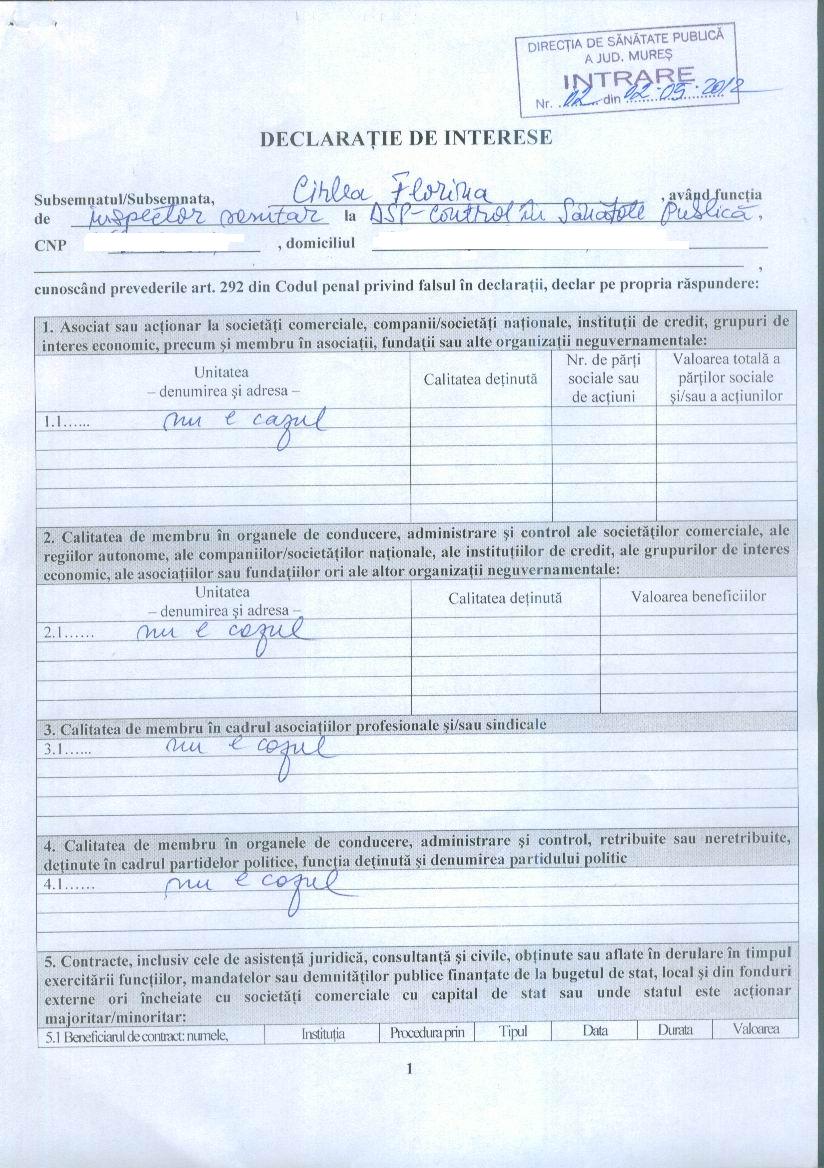 DIRECȚIA DE SĂNĂTATE PUBLICĂ
A JUD. MUREȘ
INTRARE
Nr. 02 din 02.05.2012
DECLARAȚIE DE INTERESE
Subsemnatul/Subsemnata, Cîrlea Florina , având funcția
de inspector sanitar la DSP-Control în Sănătate Publică,
CNP , domiciliul
,
cunoscând prevederile art. 292 din Codul penal privind falsul în declarații, declar pe propria răspundere:
1. Asociat sau acționar la societăți comerciale, companii/societăți naționale, instituții de credit, grupuri de
interes economic, precum și membru în asociații, fundații sau alte organizații neguvernamentale:
Unitatea
– denumirea și adresa –
Calitatea deținută
Nr. de părți
sociale sau
de acțiuni
Valoarea totală a
părților sociale
și/sau a acțiunilor
1.1...... nu e cazul
2. Calitatea de membru în organele de conducere, administrare și control ale societăților comerciale, ale
regiilor autonome, ale companiilor/societăților naționale, ale instituțiilor de credit, ale grupurilor de interes
economic, ale asociațiilor sau fundațiilor ori ale altor organizații neguvernamentale:
Unitatea
– denumirea și adresa –
Calitatea deținută
Valoarea beneficiilor
2.1...... nu e cazul
3. Calitatea de membru în cadrul asociațiilor profesionale și/sau sindicale
3.1...... nu e cazul
4. Calitatea de membru în organele de conducere, administrare și control, retribuite sau neretribuite,
deținute în cadrul partidelor politice, funcția deținută și denumirea partidului politic
4.1...... nu e cazul
5. Contracte, inclusiv cele de asistență juridică, consultanță și civile, obținute sau aflate în derulare în timpul
exercitării funcțiilor, mandatelor sau demnităților publice finanțate de la bugetul de stat, local și din fonduri
externe ori încheiate cu societăți comerciale cu capital de stat sau unde statul este acționar
majoritar/minoritar:
5.1 Beneficiarul de contract: numele, Instituția Procedura prin Tipul Data Durata Valoarea
1